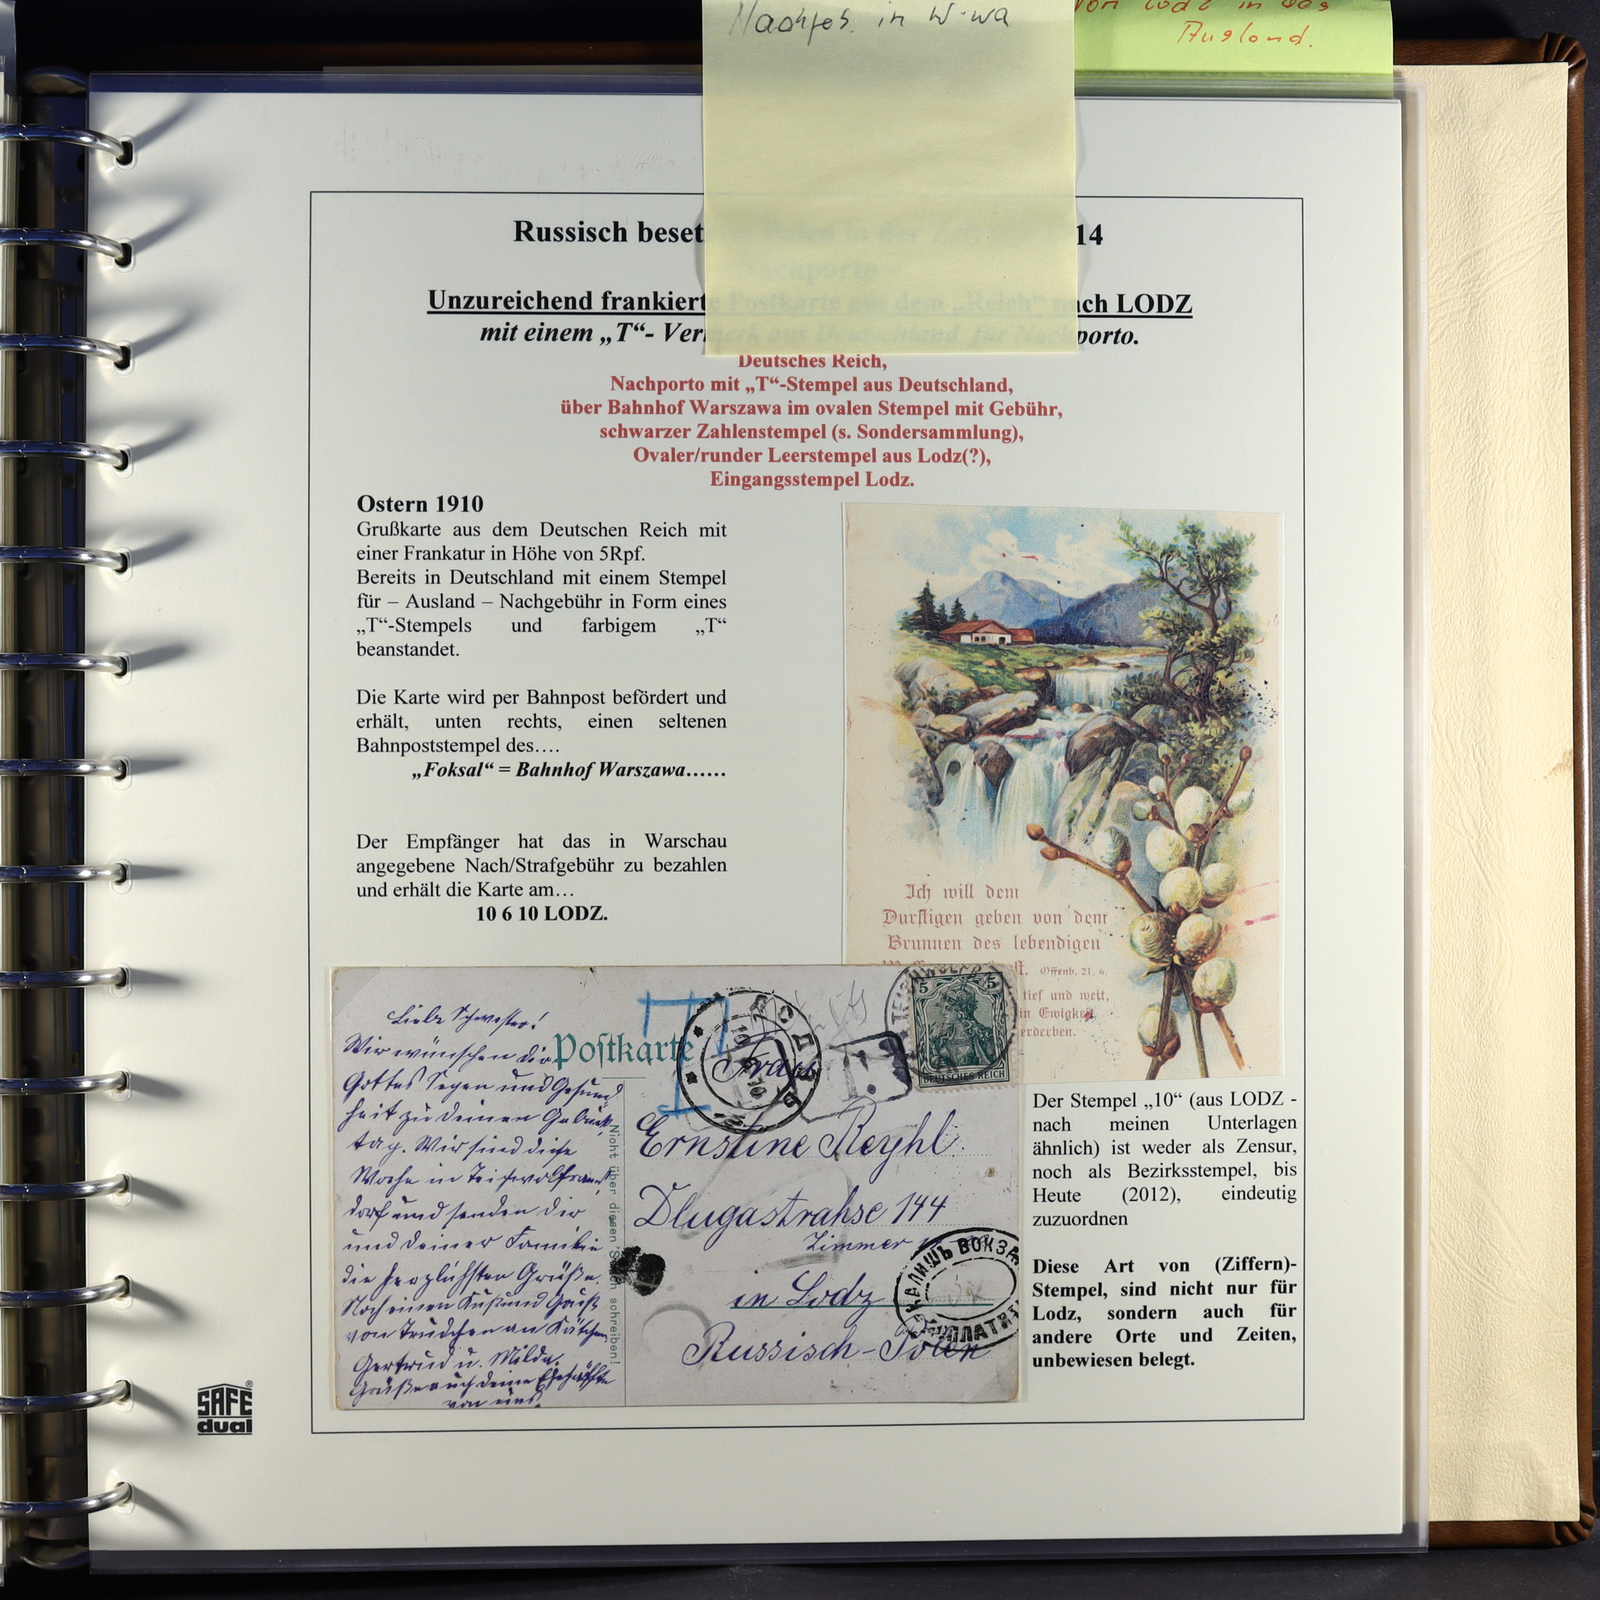 Nachgeb. in W-wa
von Lodz in das
Ausland.
Russisch beset 14
Unzureichend frankierte Postkarte aus dem „Reich“ nach LODZ
mit einem „T“- Vermerk aus Deutschland für Nachporto.
Deutsches Reich,
Nachporto mit „T“-Stempel aus Deutschland,
über Bahnhof Warszawa im ovalen Stempel mit Gebühr,
schwarzer Zahlenstempel (s. Sondersammlung),
Ovaler/runder Leerstempel aus Lodz(?),
Eingangsstempel Lodz.
Ostern 1910
Grußkarte aus dem Deutschen Reich mit
einer Frankatur in Höhe von 5Rpf.
Bereits in Deutschland mit einem Stempel
für – Ausland – Nachgebühr in Form eines
„T“-Stempels und farbigem „T“
beanstandet.
Die Karte wird per Bahnpost befördert und
erhält, unten rechts, einen seltenen
Bahnpoststempel des….
„Foksal“ = Bahnhof Warszawa……
Der Empfänger hat das in Warschau
angegebene Nach/Strafgebühr zu bezahlen
und erhält die Karte am…
10 6 10 LODZ.
Ich will dem
Durstigen geben von dem
Brunnen des lebendigen
Offenb. 21, 6.
tief und weit,
in Ewigkeit
Liebe Schwester!
Wir wünschen dir
Gottes Segen und Gesund
heit zu deinem Geburts
tag. Wir sind diese
Woche in Teichwolframs
dorf und senden dir
und deiner Familie
die herzlichsten Grüße.
Noch einen Kuß und Gruß
von Trudchen an Kätchen
Gertrud u. Milda.
Grüße auch deine
von uns.
Postkarte
Frau
Ernstine Reyhl.
Dlugastrahse 144
Zimmer
in Lodz
Russisch-Polen
Nicht über diesen Strich schreiben!
T
T.
5 5
DEUTSCHES REICH
КАЛИШЪ ВОКЗА
ДОПЛАТИТ
Der Stempel „10“ (aus LODZ -
nach meinen Unterlagen
ähnlich) ist weder als Zensur,
noch als Bezirksstempel, bis
Heute (2012), eindeutig
zuzuordnen
Diese Art von (Ziffern)-
Stempel, sind nicht nur für
Lodz, sondern auch für
andere Orte und Zeiten,
unbewiesen belegt.
SAFE®
dual